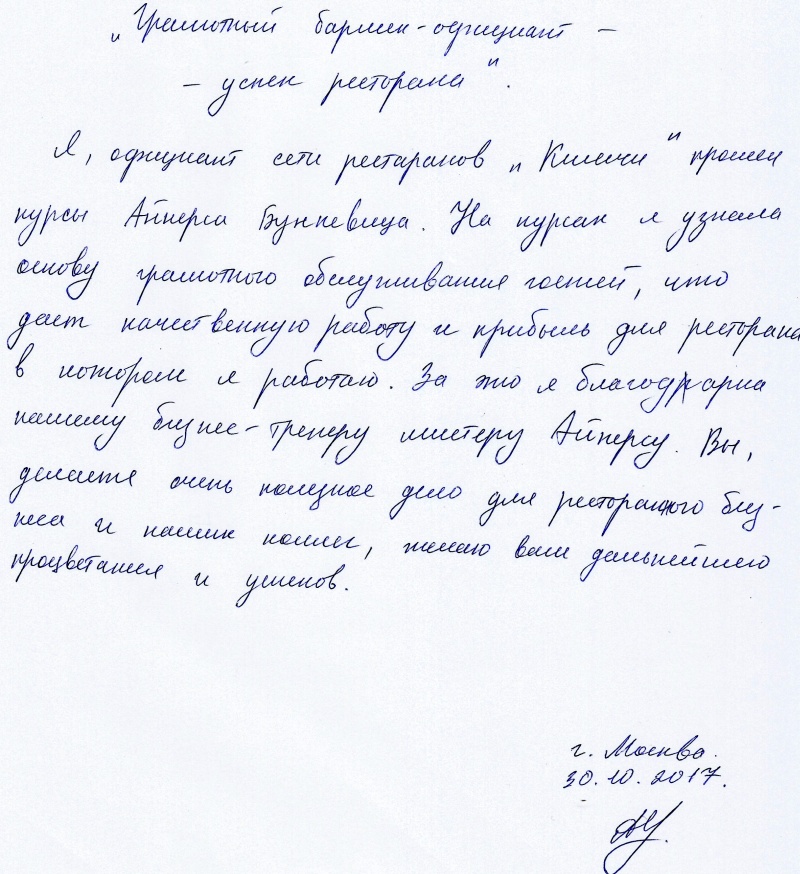 „Грамотный бармен-официант –
– успех ресторана".
Я, официант сети рестаранов „Кимчи" прошел
курсы Айнерса Бункевица. На курсах я узнала
основу грамотного обслуживания гостей, что
дает качественную работу и прибыль для ресторана
в котором я работаю. За это я благодарна
нашему бизнес-тренеру мистеру Айнерсу. Вы,
делаете очень полезное дело для ресторанного биз-
неса и наших коллег, желаю вам дальнейшего
процветания и успехов.
г. Москва.
30.10.2017.